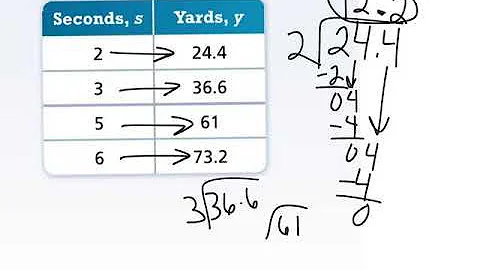 Seconds, s Yards, y
2 24.4
3 36.6
5 61
6 73.2
12.2
2 24.4
-2
04
-4
04
-4
0
3 36.6
61